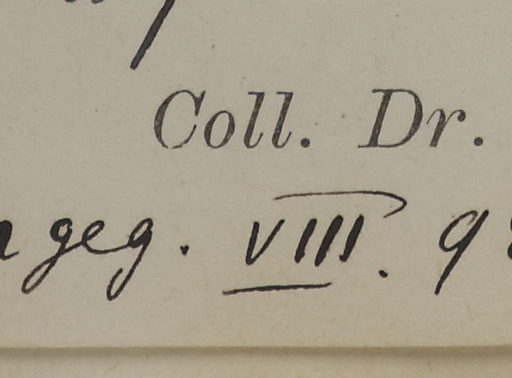 Coll. Dr.
geg. VIII. 9